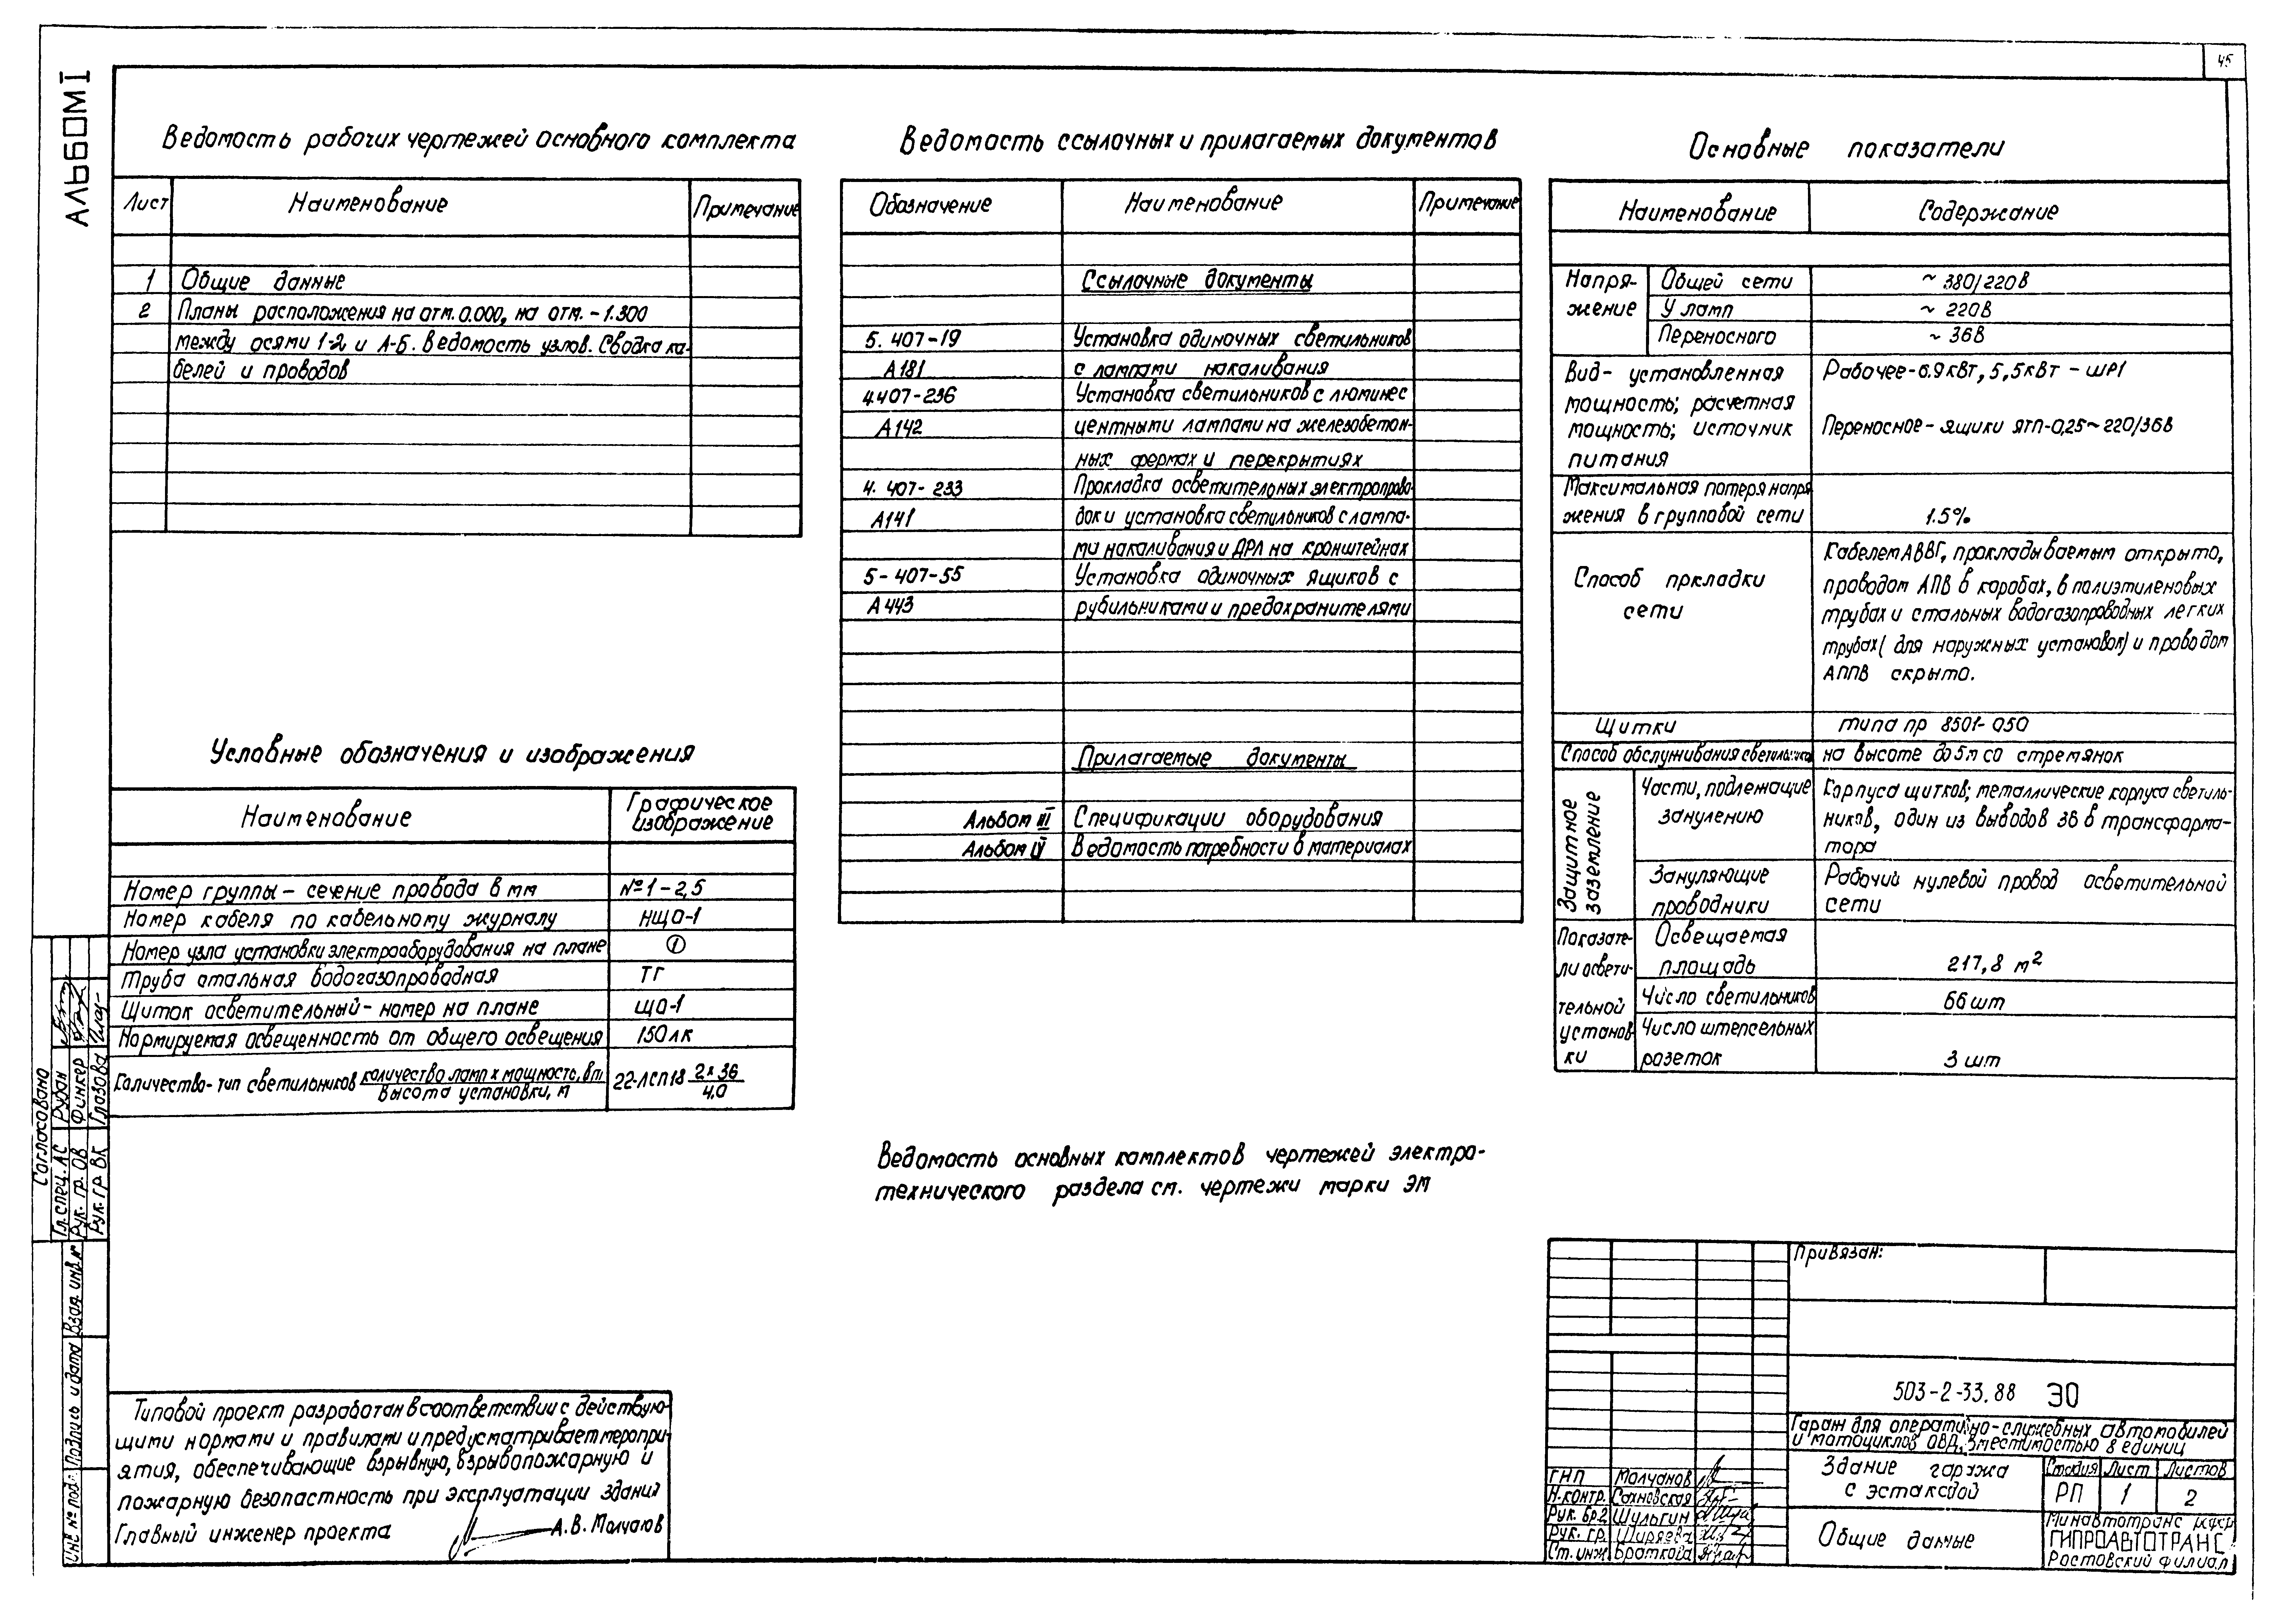 45
Альбом I
Ведомость рабочих чертежей основного комплекта
Лист Наименование Примечание
1 Общие данные
2 Планы расположения на отм. 0.000, на отм. -1.300
между осями 1-2 и А-Б. Ведомость узлов. Сводка ка-
белей и проводов
Условные обозначения и изображения
Наименование Графическое
изображение
Номер группы - сечение провода в мм №1-2,5
Номер кабеля по кабельному журналу НЩО-1
Номер узла установки электрооборудования на плане 1
Труба стальная водогазопроводная ТГ
Щиток осветительный - номер на плане ЩО-1
Нормируемая освещенность от общего освещения 150лк
Количество-тип светильников количество ламп х мощность, вт 22-ЛСП18 2х36
высота установки, м 4,0
Ведомость ссылочных и прилагаемых документов
Обозначение Наименование Примечание
Ссылочные документы
5. 407-19 Установка одиночных светильников
А181 с лампами накаливания
4.407-236 Установка светильников с люминес
А142 центными лампами на железобетон-
ных фермах и перекрытиях
4. 407-233 Прокладка осветительных электропрово-
А141 док и установка светильников с лампа-
ми накаливания и ДРЛ на кронштейнах
5-407-55 Установка одиночных ящиков с
А443 рубильниками и предохранителями
Прилагаемые документы
Альбом III Спецификации оборудования
Альбом IV Ведомость потребности в материалах
Ведомость основных комплектов чертежей электро-
технического раздела см. чертежи марки ЭМ
Основные показатели
Наименование Содержание
Напря-
жение
Общей сети ~ 380/220В
У ламп ~ 220В
Переносного ~ 36В
Вид- установленная
мощность; расчетная
мощность; источник
питания
Рабочее-6.9кВт, 5,5кВт - ШР1
Переносное- ящики ЯТП-0,25~220/36В
Максимальная потеря напря
жения в групповой сети 1.5%
Способ пркладки
сети
Кабелем АВВГ, прокладываемым открыто,
проводом АПВ в коробах, в полиэтиленовых
трубах и стальных водогазопроводных легких
трубах( для наружных установок) и проводом
АППВ скрыто.
Щитки типа пр 8501-050
Способ обслуживания светильников на высоте до 5м со стремянок
Защитное
заземление
Части, подлежащие
занулению
Корпуса щитков; металлические корпуса светиль-
ников, один из выводов 36 в трансформа-
тора
Зануляющие
проводники
Рабочий нулевой провод осветительной
сети
Показате-
ли освети-
тельной
установ-
ки
Освещаемая
площадь 217,8 м2
Число светильников 66 шт
Число штепсельных
розеток 3 шт
Согласовано
Гл.спец. АС Рубан
Рук. гр. ОВ Финкер
Рук. гр ВК Глазова
Взам. инв. №
Подпись и дата
Инв № подл.
Типовой проект разработан в соответствии с действую-
щими нормами и правилами и предусматривает меропри-
ятия, обеспечивающие взрывную, взрывопожарную и
пожарную безопастность при эксплуатации здания
Главный инженер проекта А.В. Молчанов
Привязан:
503-2-33.88 ЭО
Гараж для оперативно-служебных автомобилей
и мотоциклов ОВД, вместимостью 8 единиц
ГИП Молчанов
Н.контр. Сохновская
Рук. бр.2 Шульгин
Рук. гр. Ширяева
Ст. инж Браткова
Здание гаража
с эстакадой
Стадия Лист Листов
РП 1 2
Общие данные
Минавтотранс РСФСР
ГИПРОАВТОТРАНС
Ростовский филиал